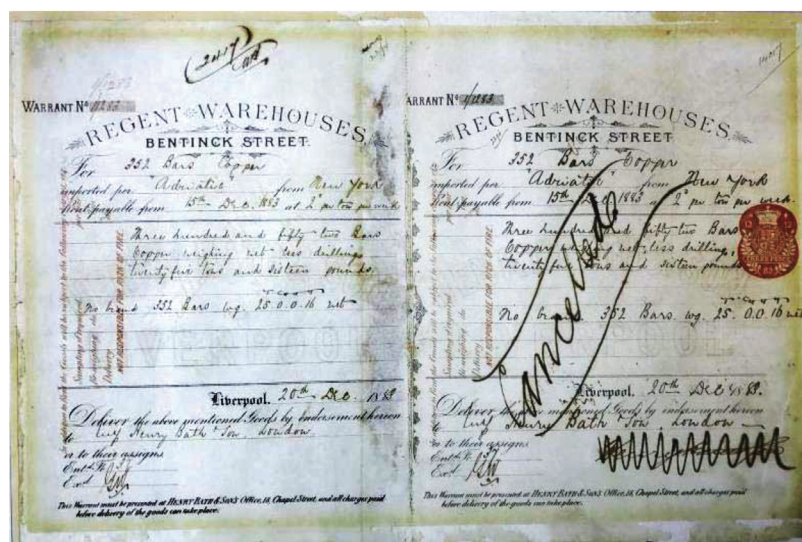 247
WARRANT Nº 11283
REGENT WAREHOUSES,
BENTINCK STREET.
For 352 Bars Copper
imported per "Adriatic" from New York
Rent payable from 15th Dec. 1883 at 2d per ton per week
Three hundred and fifty two Bars
Copper weighing net less drillings
twenty five tons and sixteen pounds
No brand 352 Bars wg. 25.0.0.16 net
Sampling if required
Re-weighing do
Delivery
NOT RESPONSIBLE FOR RISK OF FIRE
Liverpool. 20th Dec. 1883
Deliver the above mentioned Goods by endorsement hereon
to Henry Bath & Son. London
or to their assigns
Entd.
Exd.
This Warrant must be presented at HENRY BATH & SON'S Office, 18, Chapel Street, and all charges paid
before delivery of the goods can take place.
ARRANT Nº 11283
REGENT WAREHOUSES,
BENTINCK STREET.
For 352 Bars Copper
imported per "Adriatic" from New York
Rent payable from 15th Dec. 1883 at 2d per ton per week.
Three hundred and fifty two Bars
Copper weighing net less drillings,
twenty five tons and sixteen pounds
No brand 352 Bars. wg. 25.0.0.16 net
Sampling if required
Re-weighing do
Delivery
NOT RESPONSIBLE FOR RISK OF FIRE
Cancelled
Liverpool. 20th Dec 1883.
Deliver the above mentioned Goods by endorsement hereon
to Henry Bath & Son. London
or to their assigns
Entd.
Exd.
This Warrant must be presented at HENRY BATH & SON'S Office, 18, Chapel Street, and all charges paid
before delivery of the goods can take place.